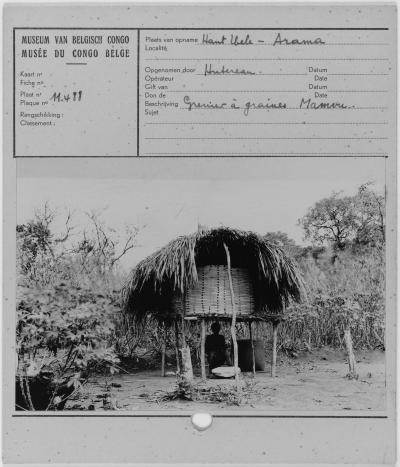 MUSEUM VAN BELGISCH CONGO
MUSÉE DU CONGO BELGE
Kaart nº
Fiche nº
Plaat nº
Plaque nº 11.411
Rangschikking :
Classement :
Plaats van opname Haut Uele - Arama
Localité
Opgenomen door Hutereau. Datum
Opérateur Date
Gift van Datum
Don de Date
Beschrijving Grenier à graines Mamvu.
Sujet